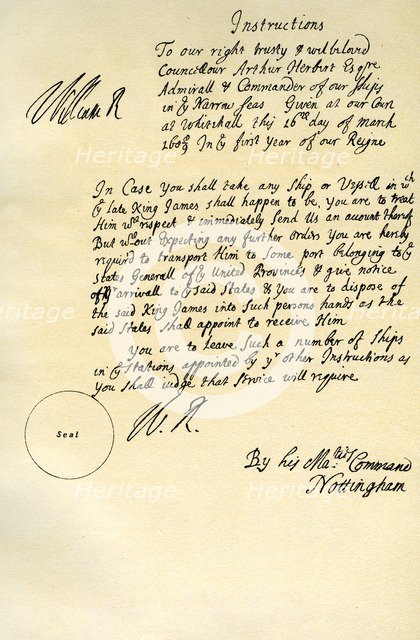 Instructions
To our right trusty & wilbelov'd
Councellour Arthur Herbert Esqre
Admirall & Commander of our Ships
in ye Narrow seas Given at our Court
at Whitehall this 16th day of March
1688/9 In ye first year of our Reigne
William R
In Case You shall take any Ship or Vessell in wch
ye late King James shall happen to be, You are to treat
Him wth respect & immediately Send Us an account thereof
But wthout expecting any further orders You are hereby
requird to transport Him to Some port belonging to ye
States Generall of ye United Provinces & give notice
of yr arrivall to ye Said States & You are to dispose of
the said King James into Such persons hands as the
said States Shall appoint to receive Him
You are to leave Such a number of Ships
in ye Stations appointed by yr other Instructions as
You Shall judge that Service will require
Seal
W. R.
By his Matis Command
Nottingham
Heritage
Heritage
Heritage
Heritage
Heritage
Heritage
Heritage
Heritage